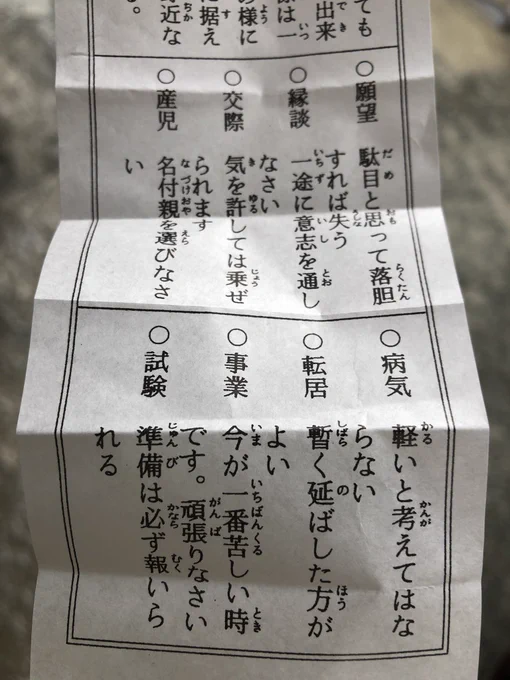 ても
出来
際は一
の様に
に据え
身近な
る。
○願望
駄目と思って落胆
すれば失う
○縁談
一途に意志を通し
なさい
○交際
気を許しては乗ぜ
られます
○産児
名付親を選びなさ
い
○病気
軽いと考えてはな
らない
○転居
暫く延ばした方が
よい
○事業
今が一番苦しい時
です。頑張りなさい
○試験
準備は必ず報いら
れる